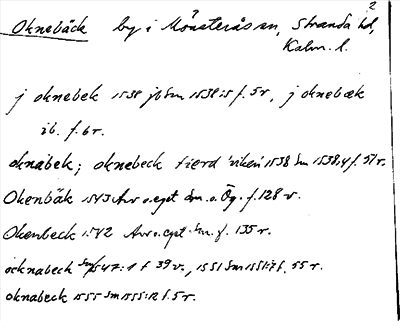 2
Oknebäck by i Mönsterås sn, Stranda hd,
Kalm. l.
j oknebek 1538 jb Sm 1538:15 f. 5r, j oknebæk
ib. f. 6r.
oknabek; oknebeck fierd 1538 Sm 1538:4 f. 57r.
Okenbäk 1543 Arv o. eget Sm. o. Ög. f. 128 v.
Okenbeck 1542 Arv o. eget Sm. f. 135 r.
ocknabeck Sm 1547:1 f 39 v., 1551 Sm 1551:7 f. 55 r.
oknabeck 1555 Sm 1555:12 f. 5 r.